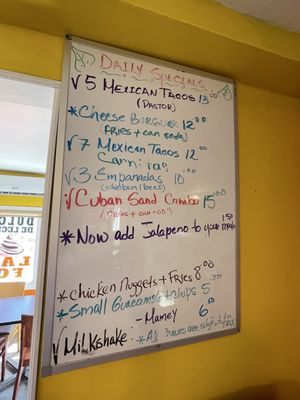 DAILY Specials
√ 5 MEXICAN TACOS 13.00
(PASTOR)
*Cheese BURGUER 12.00
(FRIES + can soda)
√ 7 Mexican Tacos 12.00
Carnitas
√ 3 Empanadas 10.00
(chicken / beef)
√ Cuban Sand Combo 15.00
*Now add Jalapeno to your meal 1.50
*chicken Nuggets + Fries 8.00
*Small Guacamole + chips 5.00
√ Milkshake: - Mamey 6.00
*All prices are subject to tax
DULCE
DE LECHE
LA